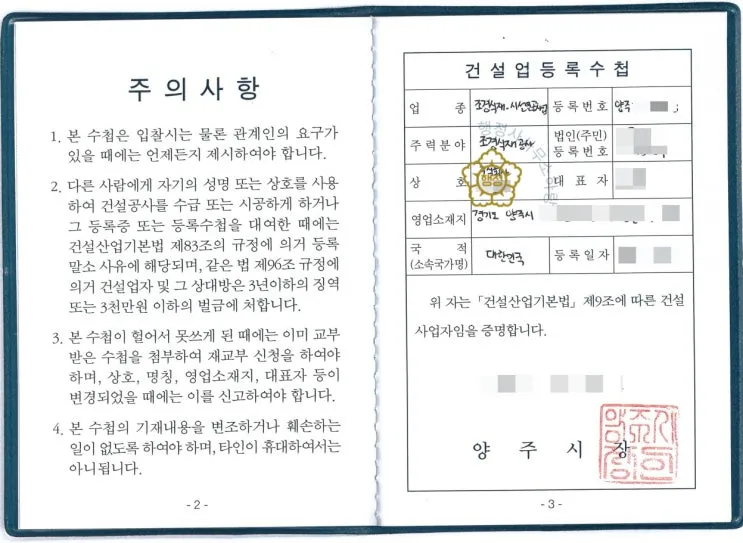 주의사항
1. 본 수첩은 입찰시는 물론 관계인의 요구가
있을 때에는 언제든지 제시하여야 합니다.
2. 다른 사람에게 자기의 성명 또는 상호를 사용
하여 건설공사를 수급 또는 시공하게 하거나
그 등록증 또는 등록수첩을 대여한 때에는
건설산업기본법 제83조의 규정에 의거 등록
말소 사유에 해당되며, 같은 법 제96조 규정에
의거 건설업자 및 그 상대방은 3년이하의 징역
또는 3천만원 이하의 벌금에 처합니다.
3. 본 수첩이 헐어서 못쓰게 된 때에는 이미 교부
받은 수첩을 첨부하여 재교부 신청을 하여야
하며, 상호, 명칭, 영업소재지, 대표자 등이
변경되었을 때에는 이를 신고하여야 합니다.
4. 본 수첩의 기재내용을 변조하거나 훼손하는
일이 없도록 하여야 하며, 타인이 휴대하여서는
아니됩니다.
- 2 -
건설업등록수첩
업 종 조경식재·시설물공사업 등록번호 양주
주력분야 조경식재공사 법인(주민)
등록번호
상 호 대 표 자
행정
영업소재지 경기도 양주시
국 적
(소속국가명) 대한민국 등록일자
위 자는 「건설산업기본법」 제9조에 따른 건설
사업자임을 증명합니다.
양 주 시 장
- 3 -